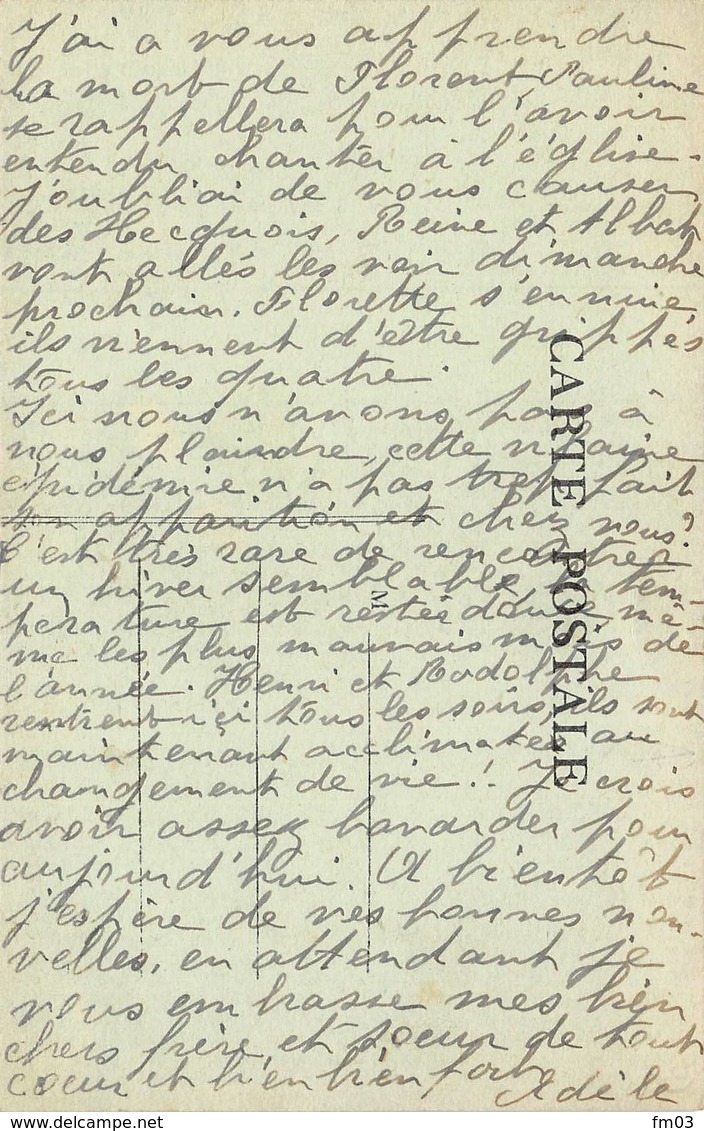 J'ai a vous apprendre
la mort de Florent, Pauline
se rappellera pour l'avoir
entendu chanter à l'église.
J'oubliai de vous causer
des Hecquois, Reine et Albert
vont allés les voir dimanche
prochain. Florette s'ennuie,
ils viennent d'être grippés
tous les quatre.
Ici nous n'avons pas à
nous plaindre, cette vilaine
épidémie n'a pas trop fait
son apparition et chez vous?
C'est très rare de rencontrer
un hiver semblable, la tem-
pérature est restée douce, mê-
me les plus mauvais mois de
l'année. Henri et Rodolphe
rentrent içi tous les soirs, ils sont
maintenant acclimatés au
changement de vie!! Je crois
avoir assez bavarder pour
aujourd'hui. A bientôt
j'espère de vos bonnes nou-
velles, en attendant je
vous embrasse mes bien
chers frère et soeur de tout
coeur et bien bien fort Adèle
CARTE POSTALE
M
fm03